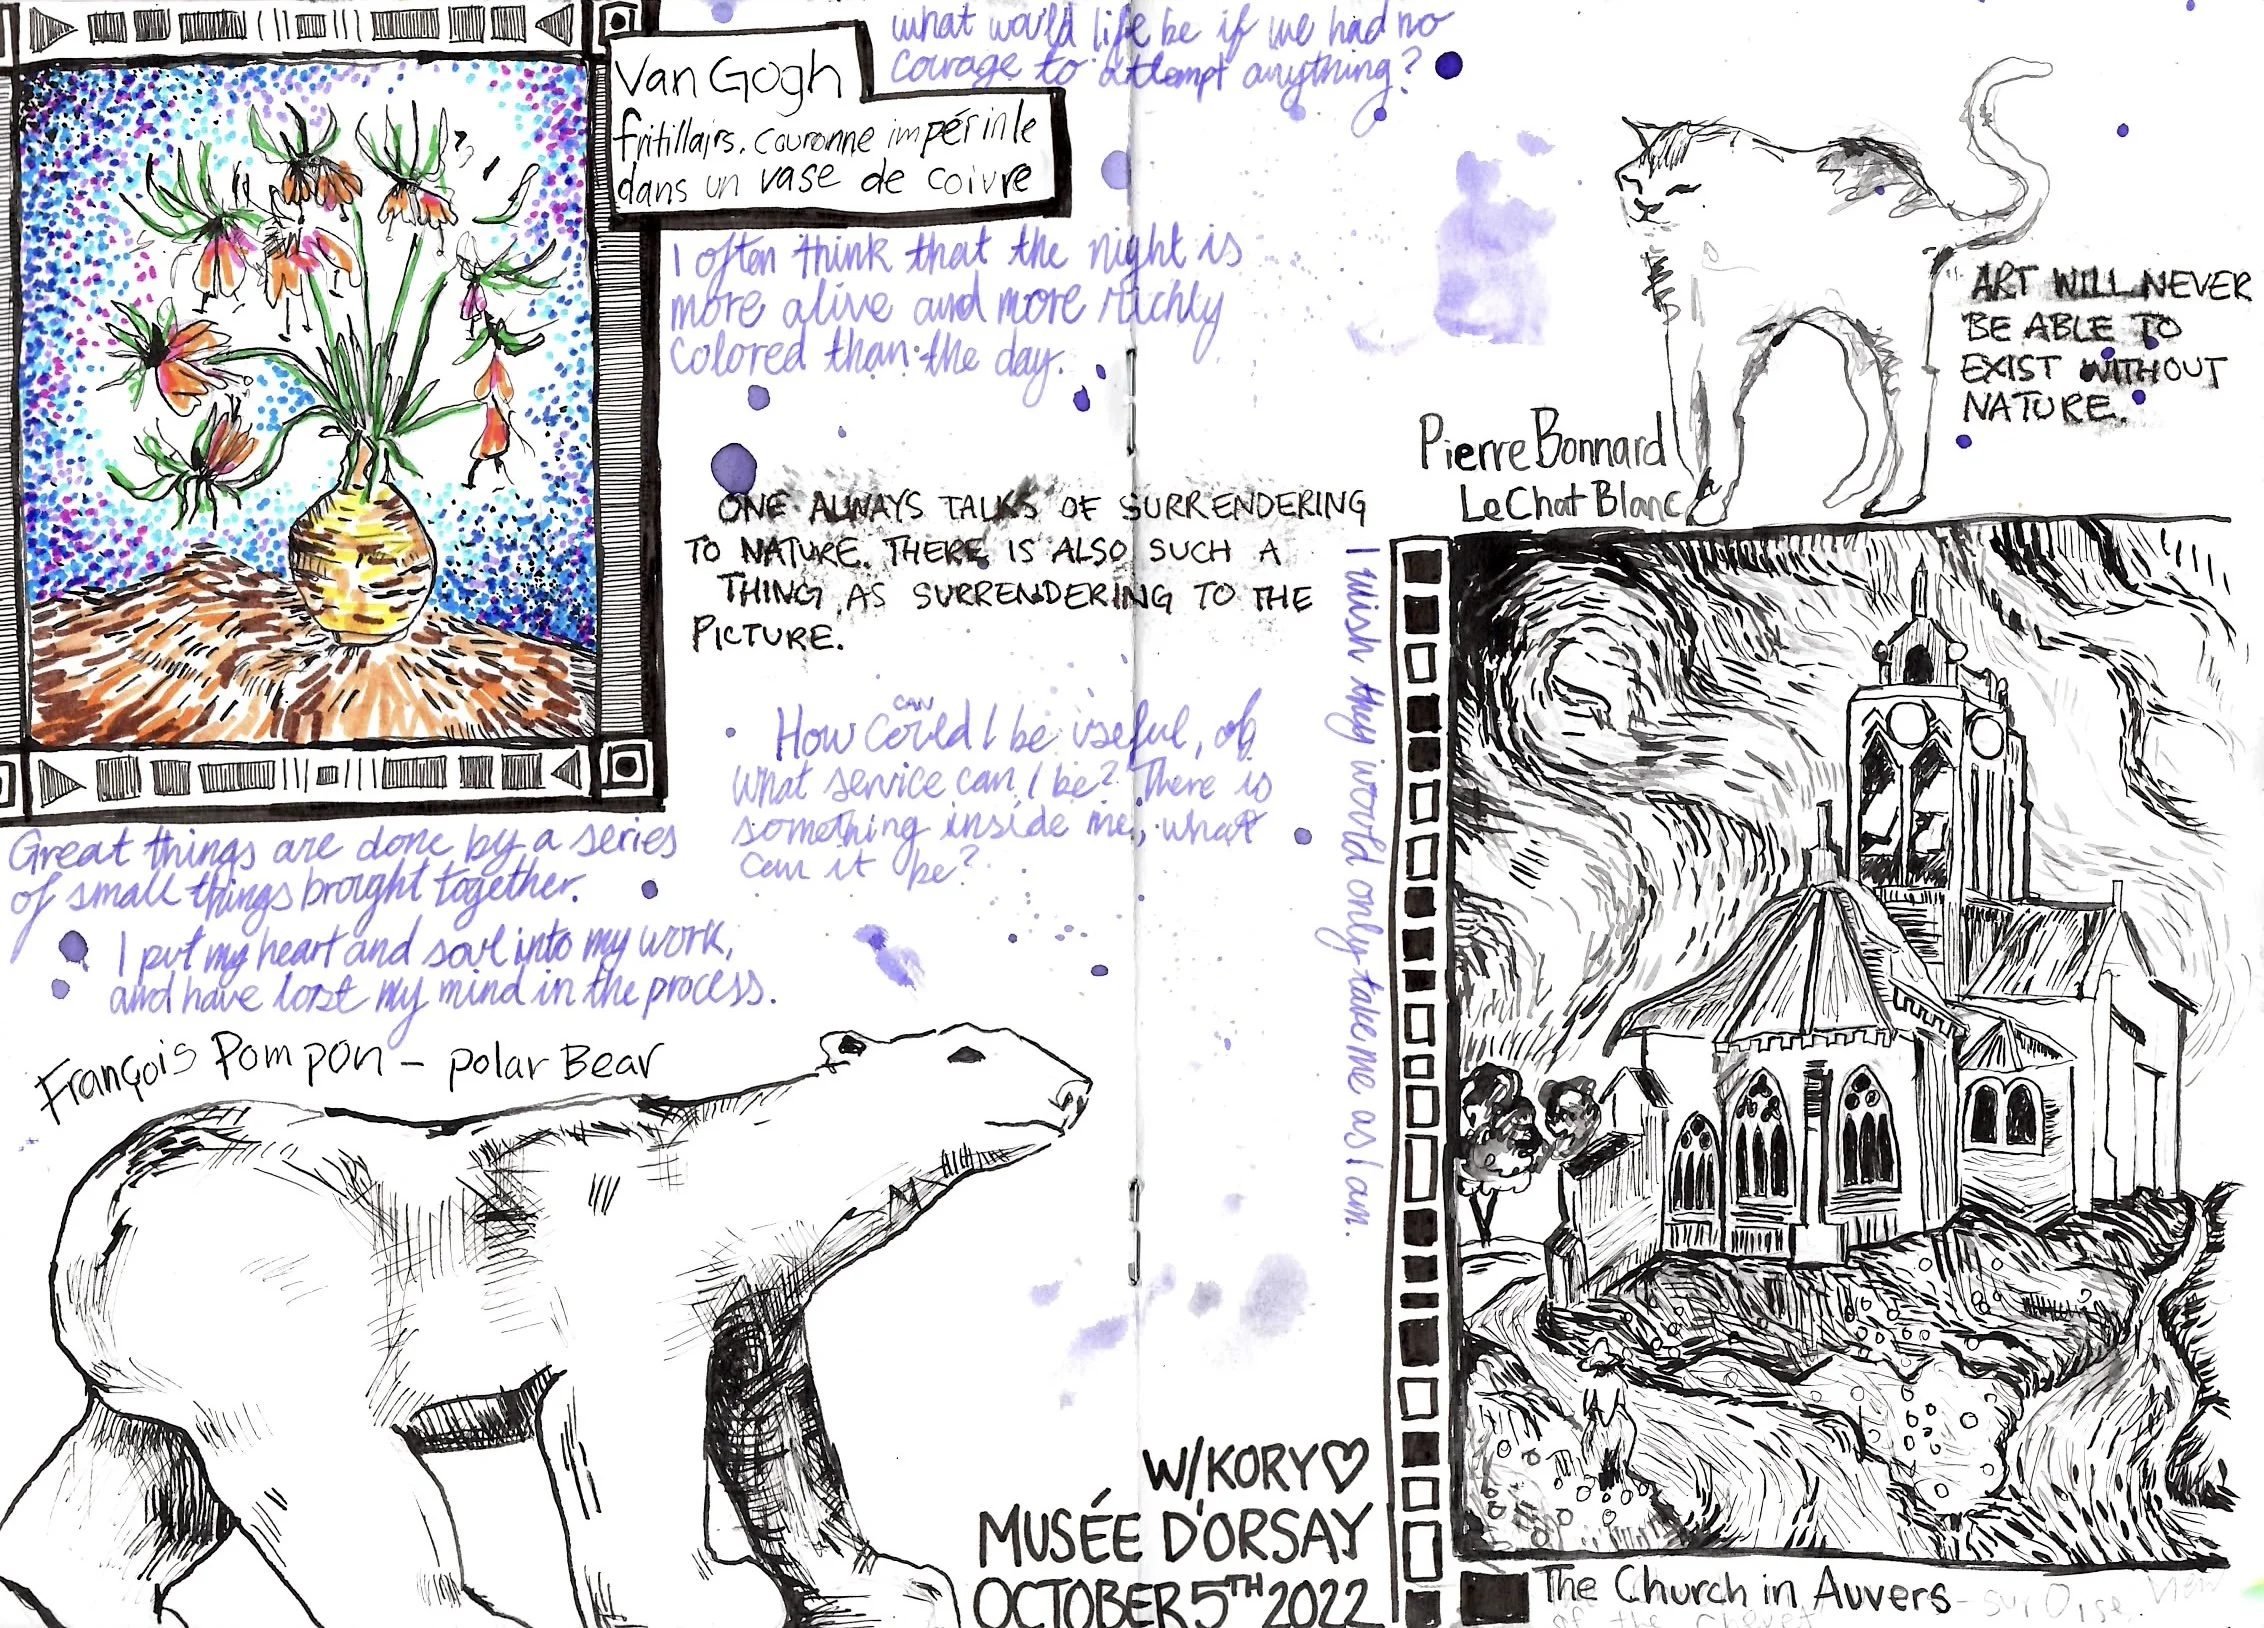 what would life be if we had no
courage to attempt anything?
Van Gogh
fritillairs. couronne impérinle
dans un vase de coivre
I often think that the night is
more alive and more richly
colored than the day.
ART WILL NEVER
BE ABLE TO
EXIST WITHOUT
NATURE.
Pierre Bonnard
Le Chat Blanc
ONE ALWAYS TALKS OF SURRENDERING
TO NATURE. THERE IS ALSO SUCH A
THING AS SURRENDERING TO THE
PICTURE.
I wish they would only take me as I am.
CAN
How could I be useful, of
what service can I be? There is
something inside me, what
can it be?
Great things are done by a series
of small things brought together.
I put my heart and soul into my work,
and have lost my mind in the process.
François Pompon - polar Bear
W/KORY♡
MUSÉE D'ORSAY
OCTOBER 5TH 2022
The Church in Auvers - sur Oise, View
of the Chevet